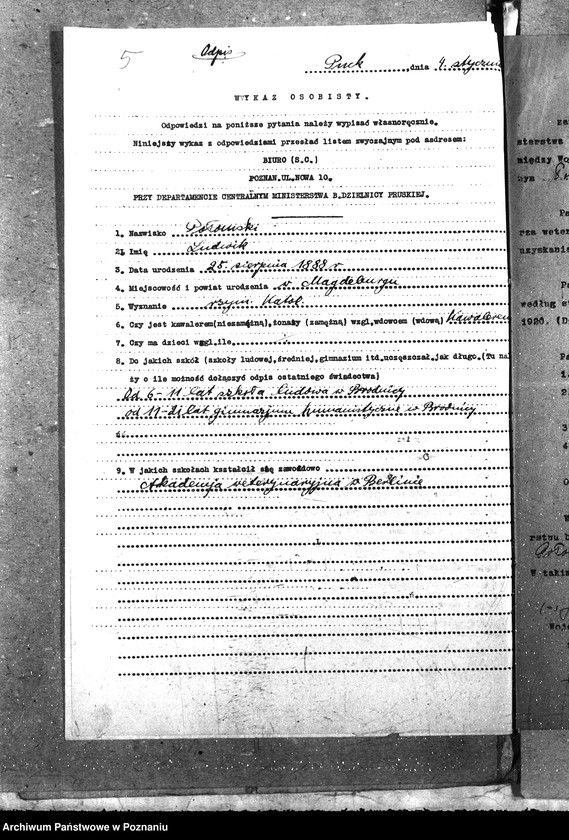 5
Odpis
Puck, dnia 4. stycznia
WYKAZ OSOBISTY.
Odpowiedzi na poniższe pytania należy wypisać własnoręcznie.
Niniejszy wykaz z odpowiedziami przesłać listem zwyczajnym pod adresem:
BIURO (S.C.)
POZNAN.UL.NOWA 10.
PRZY DEPARTAMENCIE CENTRALNYM MINISTERSTWA B.DZIELNICY PRUSKIEJ.
1. Nazwisko Połomski
2. Imię Ludwik
3. Data urodzenia 25. sierpnia 1888 r.
4. Miejscowość i powiat urodzenia w Magdeburgu
5. Wyznanie rzym. katol.
6. Czy jest kawalerem(niezamężną), żonaty (zamężną) wzgl. wdowcem (wdową) Kawalerem
7. Czy ma dzieci wzgl. ile
8. Do jakich szkół (szkoły ludowej, średniej, gimnazium itd. uczęszczał, jak długo. (Tu na
ży o ile możność dołączyć odpis ostatniego świadectwa)
Od 6-11 lat szkoła ludowa w Brodnicy
od 11-21 lat gimnazjum humanistyczne w Brodnicy
9. W jakich szkołach kształcił się zawodowo
Akademja weterynaryjna w Berlinie
za
sterstwa
między Wo
nym
Pa
rza weter
uzyskania
Pa
według s
1920. (D
1.
2.
3
4
W takim
Woje
Archiwum Państwowe w Poznaniu